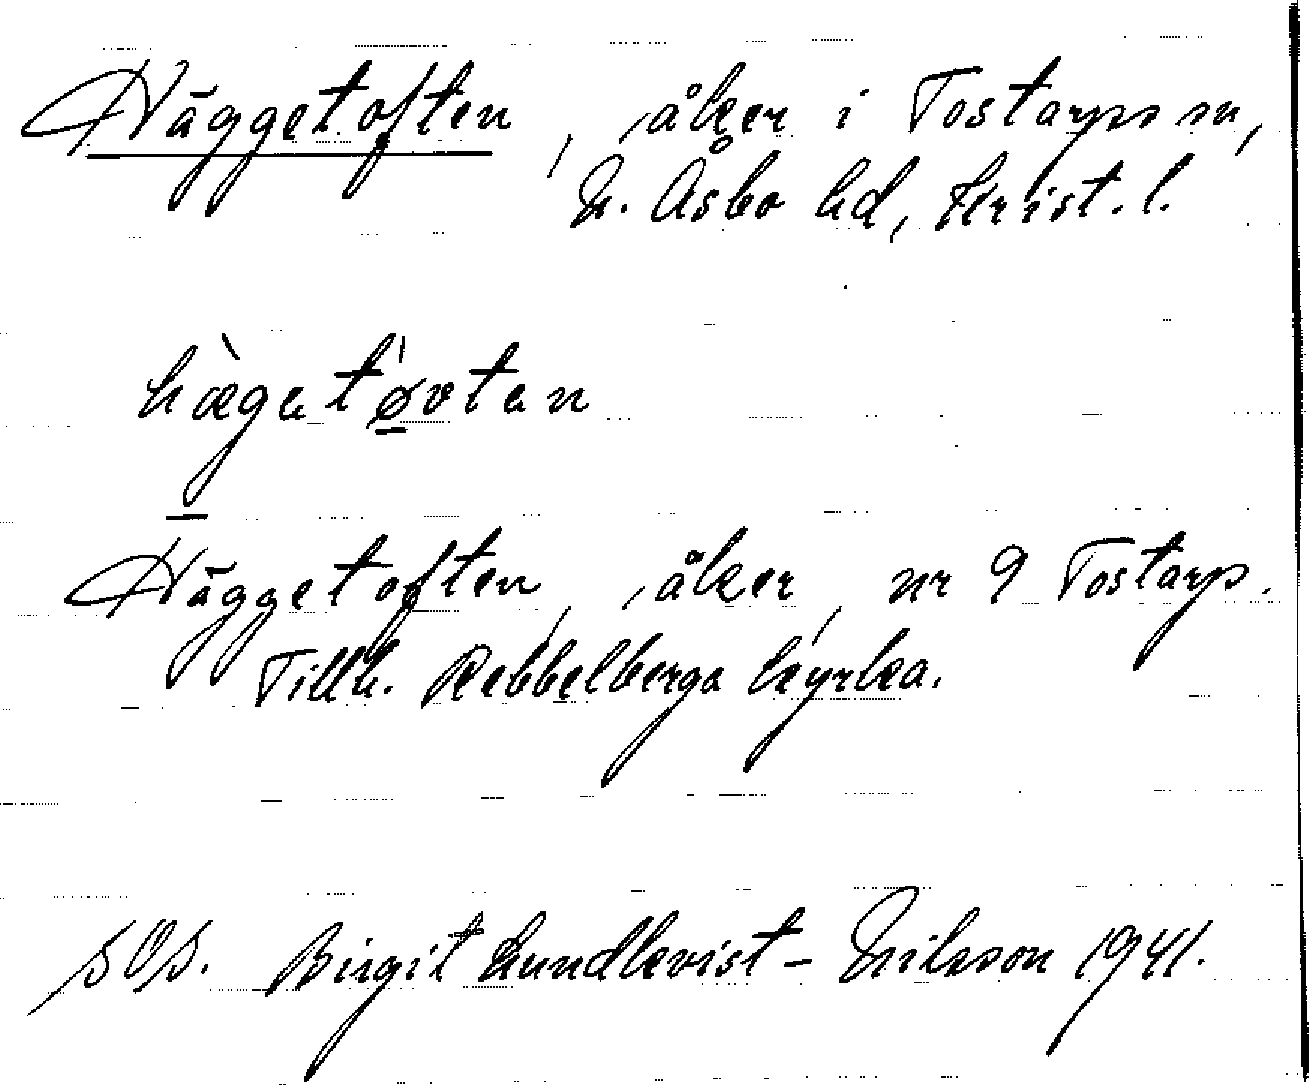 Häggetoften, åker i Tostarps sn,
N. Åsbo hd, Krist. l.
hæ̀gatø̍vtan
Häggetoften, åker, nr 9 Tostarp.
Tillh. Rebbelberga kyrka.
SOS. Birgit Lundkvist - Nilsson 1941.